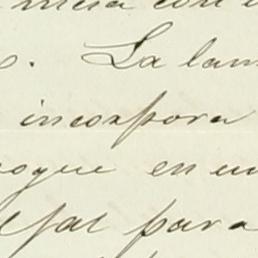 mesa con
. La lam
incorpora
ogue en un
para